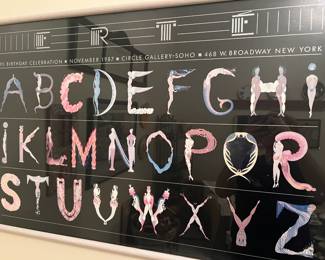 ERTÉ
BIRTHDAY CELEBRATION ■ NOVEMBER 1987 ■ CIRCLE GALLERY-SOHO ■ 468 W. BROADWAY NEW YORK
ABCDEFGHI
JKLMNOPQR
STUVWXYZ